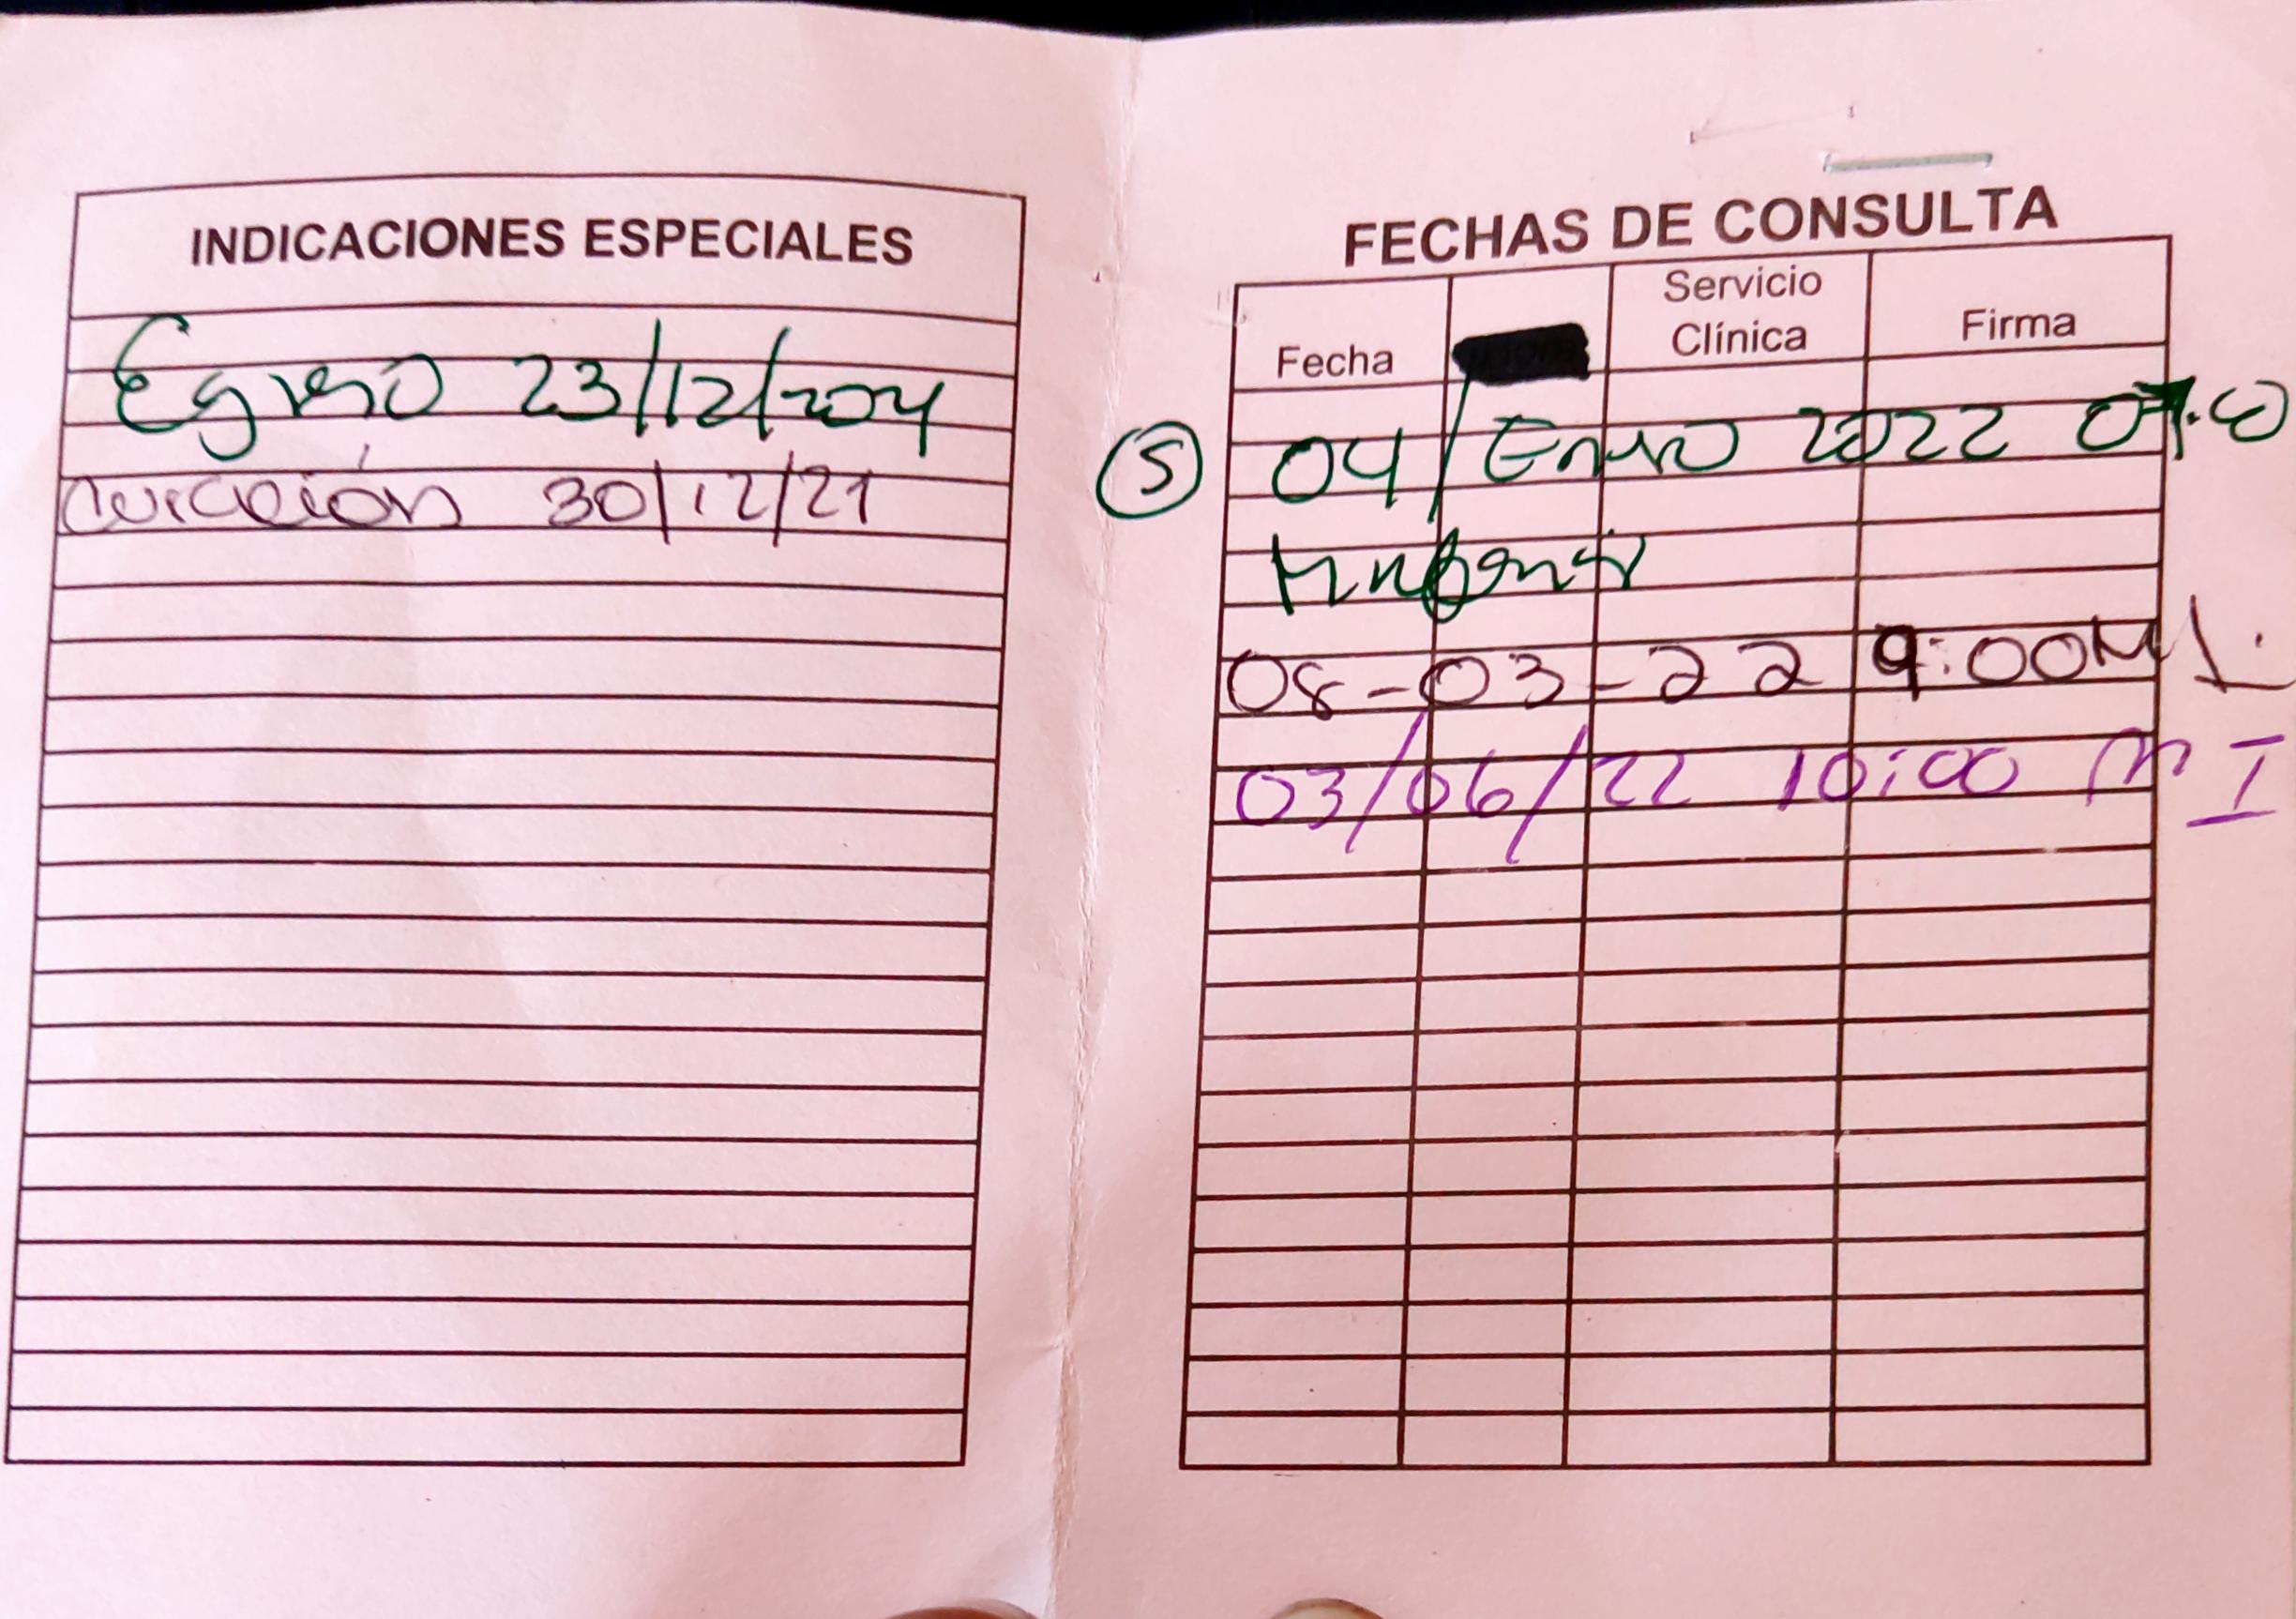 INDICACIONES ESPECIALES
Egreso 23/12/2021
curación 30/12/21
FECHAS DE CONSULTA
Fecha Servicio Clínica Firma
5 04/Enero 2022
08-03-22 9:00 M I.
03/06/22 10:00 M I